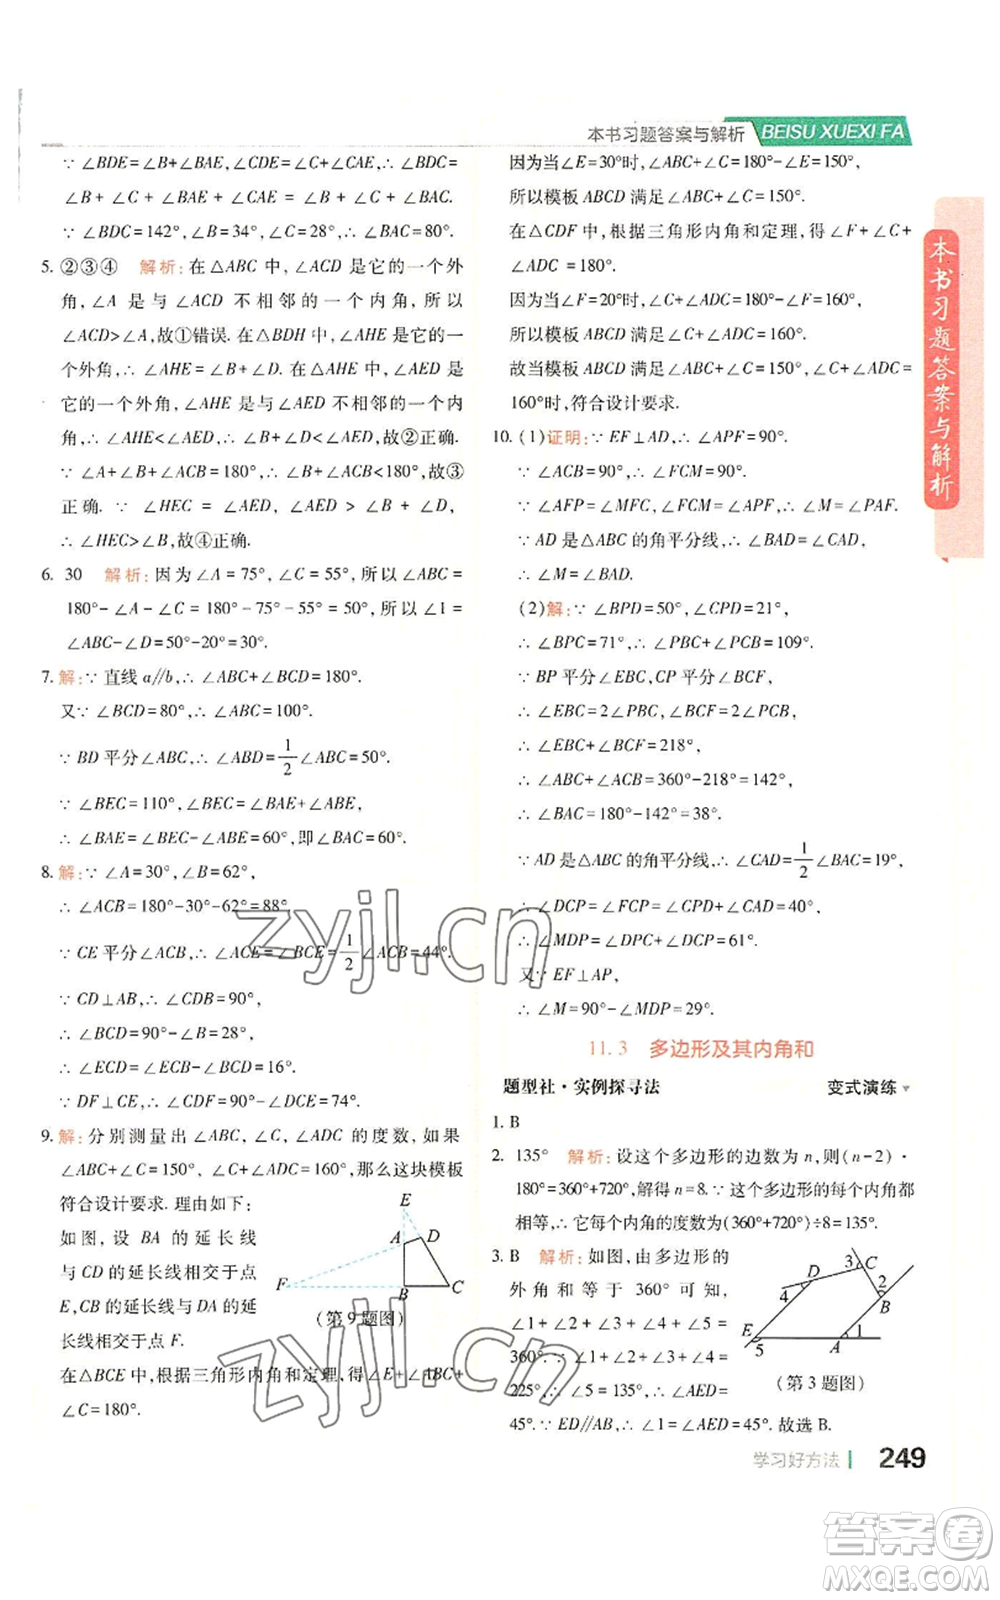 本书习题答案与解析 BEISU XUEXI FA
∵ ∠BDE=∠B+∠BAE,∠CDE=∠C+∠CAE,
∴ ∠BDE + ∠CDE = ∠B + ∠BAE + ∠C+∠CAE=
∠B + ∠C + ∠BAE + ∠CAE = ∠B + ∠C + ∠BAC.
∵ ∠BDC=142°,∠B=34°,∠C=28°,∴ ∠BAC=80°.
5. ②③④ 解析:在△ABC中,∠ACD是它的一个外
角,∠A 是与 ∠ACD 不相邻的一个内角,所以
∠ACD>∠A,故①错误. 在△BDH 中,∠AHE 是它的
一个外角,∴ ∠AHE=∠B+∠D. 在△AHE中,∠AED是
它的一个外角,∠AHE 是与∠AED 不相邻的一个内
角,∴ ∠AHE<∠AED,∴ ∠B+∠D<∠AED,故②正确.
∵ ∠A+∠B+∠ACB=180°,∴ ∠B+∠ACB<180°,故③
正确. ∵ ∠HEC = ∠AED, ∠AED > ∠B + ∠D,
∴ ∠HEC>∠B,故④正确.
6. 30 解析:因为∠A=75°,∠C=55°,所以∠ABC=
180°-∠A-∠C=180°-75°-55°=50°,所以∠1=
∠ABC-∠D=50°-20°=30°.
7. 解:∵ 直线 a∥b,∴ ∠ABC+∠BCD=180°.
又∵ ∠BCD=80°,∴ ∠ABC=100°.
∵ BD 平分∠ABC,∴ ∠ABE=1/2∠ABC=50°.
∵ ∠BEC=110°,∠BEC=∠BAE+∠ABE,
∴ ∠BAE=∠BEC-∠ABE=60°,即∠BAC=60°.
8. 解:∵ ∠A=30°,∠B=62°,
∴ ∠ACB=180°-30°-62°=88°.
∵ CE 平分∠ACB,∴ ∠ACE=∠BCE=1/2∠ACB=44°.
∵ CD⊥AB,∴ ∠CDB=90°,
∴ ∠BCD=90°-∠B=28°,
∴ ∠ECD=∠ECB-∠BCD=16°.
∵ DF⊥CE,∴ ∠CDF=90°-∠ECD=74°.
9. 解:分别测量出∠ABC,∠C,∠ADC 的度数,如果
∠ABC+∠C=150°, ∠C+∠ADC=160°,那么这块模板
符合设计要求. 理由如下:
如图,设 BA 的延长线
与CD的延长线相交于点
E,CB的延长线与DA的延
长线相交于点 F.
E
A
D
F
B
C
(第9题图)
在△BCE中,根据三角形内角和定理,得∠E+∠ABC+
∠C=180°.
因为当∠E=30°时,∠ABC+∠C=180°-∠E=150°,
所以模板 ABCD 满足∠ABC+∠C=150°.
在△CDF中,根据三角形内角和定理,得∠F+∠C+
∠ADC=180°.
因为当∠F=20°时,∠C+∠ADC=180°-∠F=160°,
所以模板 ABCD 满足∠C+∠ADC=160°.
故当模板 ABCD 满足∠ABC+∠C=150°,∠C+∠ADC=
160°时,符合设计要求.
10. (1)证明:∵ EF⊥AD,∴ ∠APF=90°.
∵ ∠ACB=90°,∴ ∠FCM=90°.
∵ ∠AFP=∠MFC,∠APF=∠FCM=90°,∴ ∠M=∠PAF.
∵ AD是△ABC的角平分线,∴ ∠BAD=∠CAD,
∴ ∠M=∠BAD.
(2)解:∵ ∠BPD=50°,∠CPD=21°,
∴ ∠BPC=71°,∴ ∠PBC+∠PCB=109°.
∵ BP 平分∠EBC,CP 平分∠BCF,
∴ ∠EBC=2∠PBC,∠BCF=2∠PCB,
∴ ∠EBC+∠BCF=218°,
∴ ∠ABC+∠ACB=360°-218°=142°,
∴ ∠BAC=180°-142°=38°.
∵ AD是△ABC的角平分线,∴ ∠CAD=1/2∠BAC=19°,
∴ ∠DCP=∠FCP=∠CPD+∠CAD=40°,
∴ ∠MDP=∠DCP+∠CPD=61°.
又∵ EF⊥AP,
∴ ∠M=90°-∠MDP=29°.
11.3 多边形及其内角和
题型社·实例探寻法 变式演练
1. B
2. 135° 解析:设这个多边形的边数为 n,则(n-2)·
180°=360°+720°,解得 n=8.∵ 这个多边形的每个内角都
相等,∴ 它每个内角的度数为(360°+720°)÷8=135°.
3. B 解析:如图,由多边形的
外角和等于 360° 可知,
∠1+∠2+∠3+∠4+∠5=
360°.∵ ∠1+∠2+∠3+∠4=
225°,∴ ∠5=135°,∴ ∠AED=
45°.∵ ED∥AB,∴ ∠1=∠AED=45°. 故选 B.
3
C
D
2
4
B
E
1
5
A
(第3题图)
本书习题答案与解析
学习好方法 249
zyjl.cn
zyjl.cn
答案卷
MXQE.COM